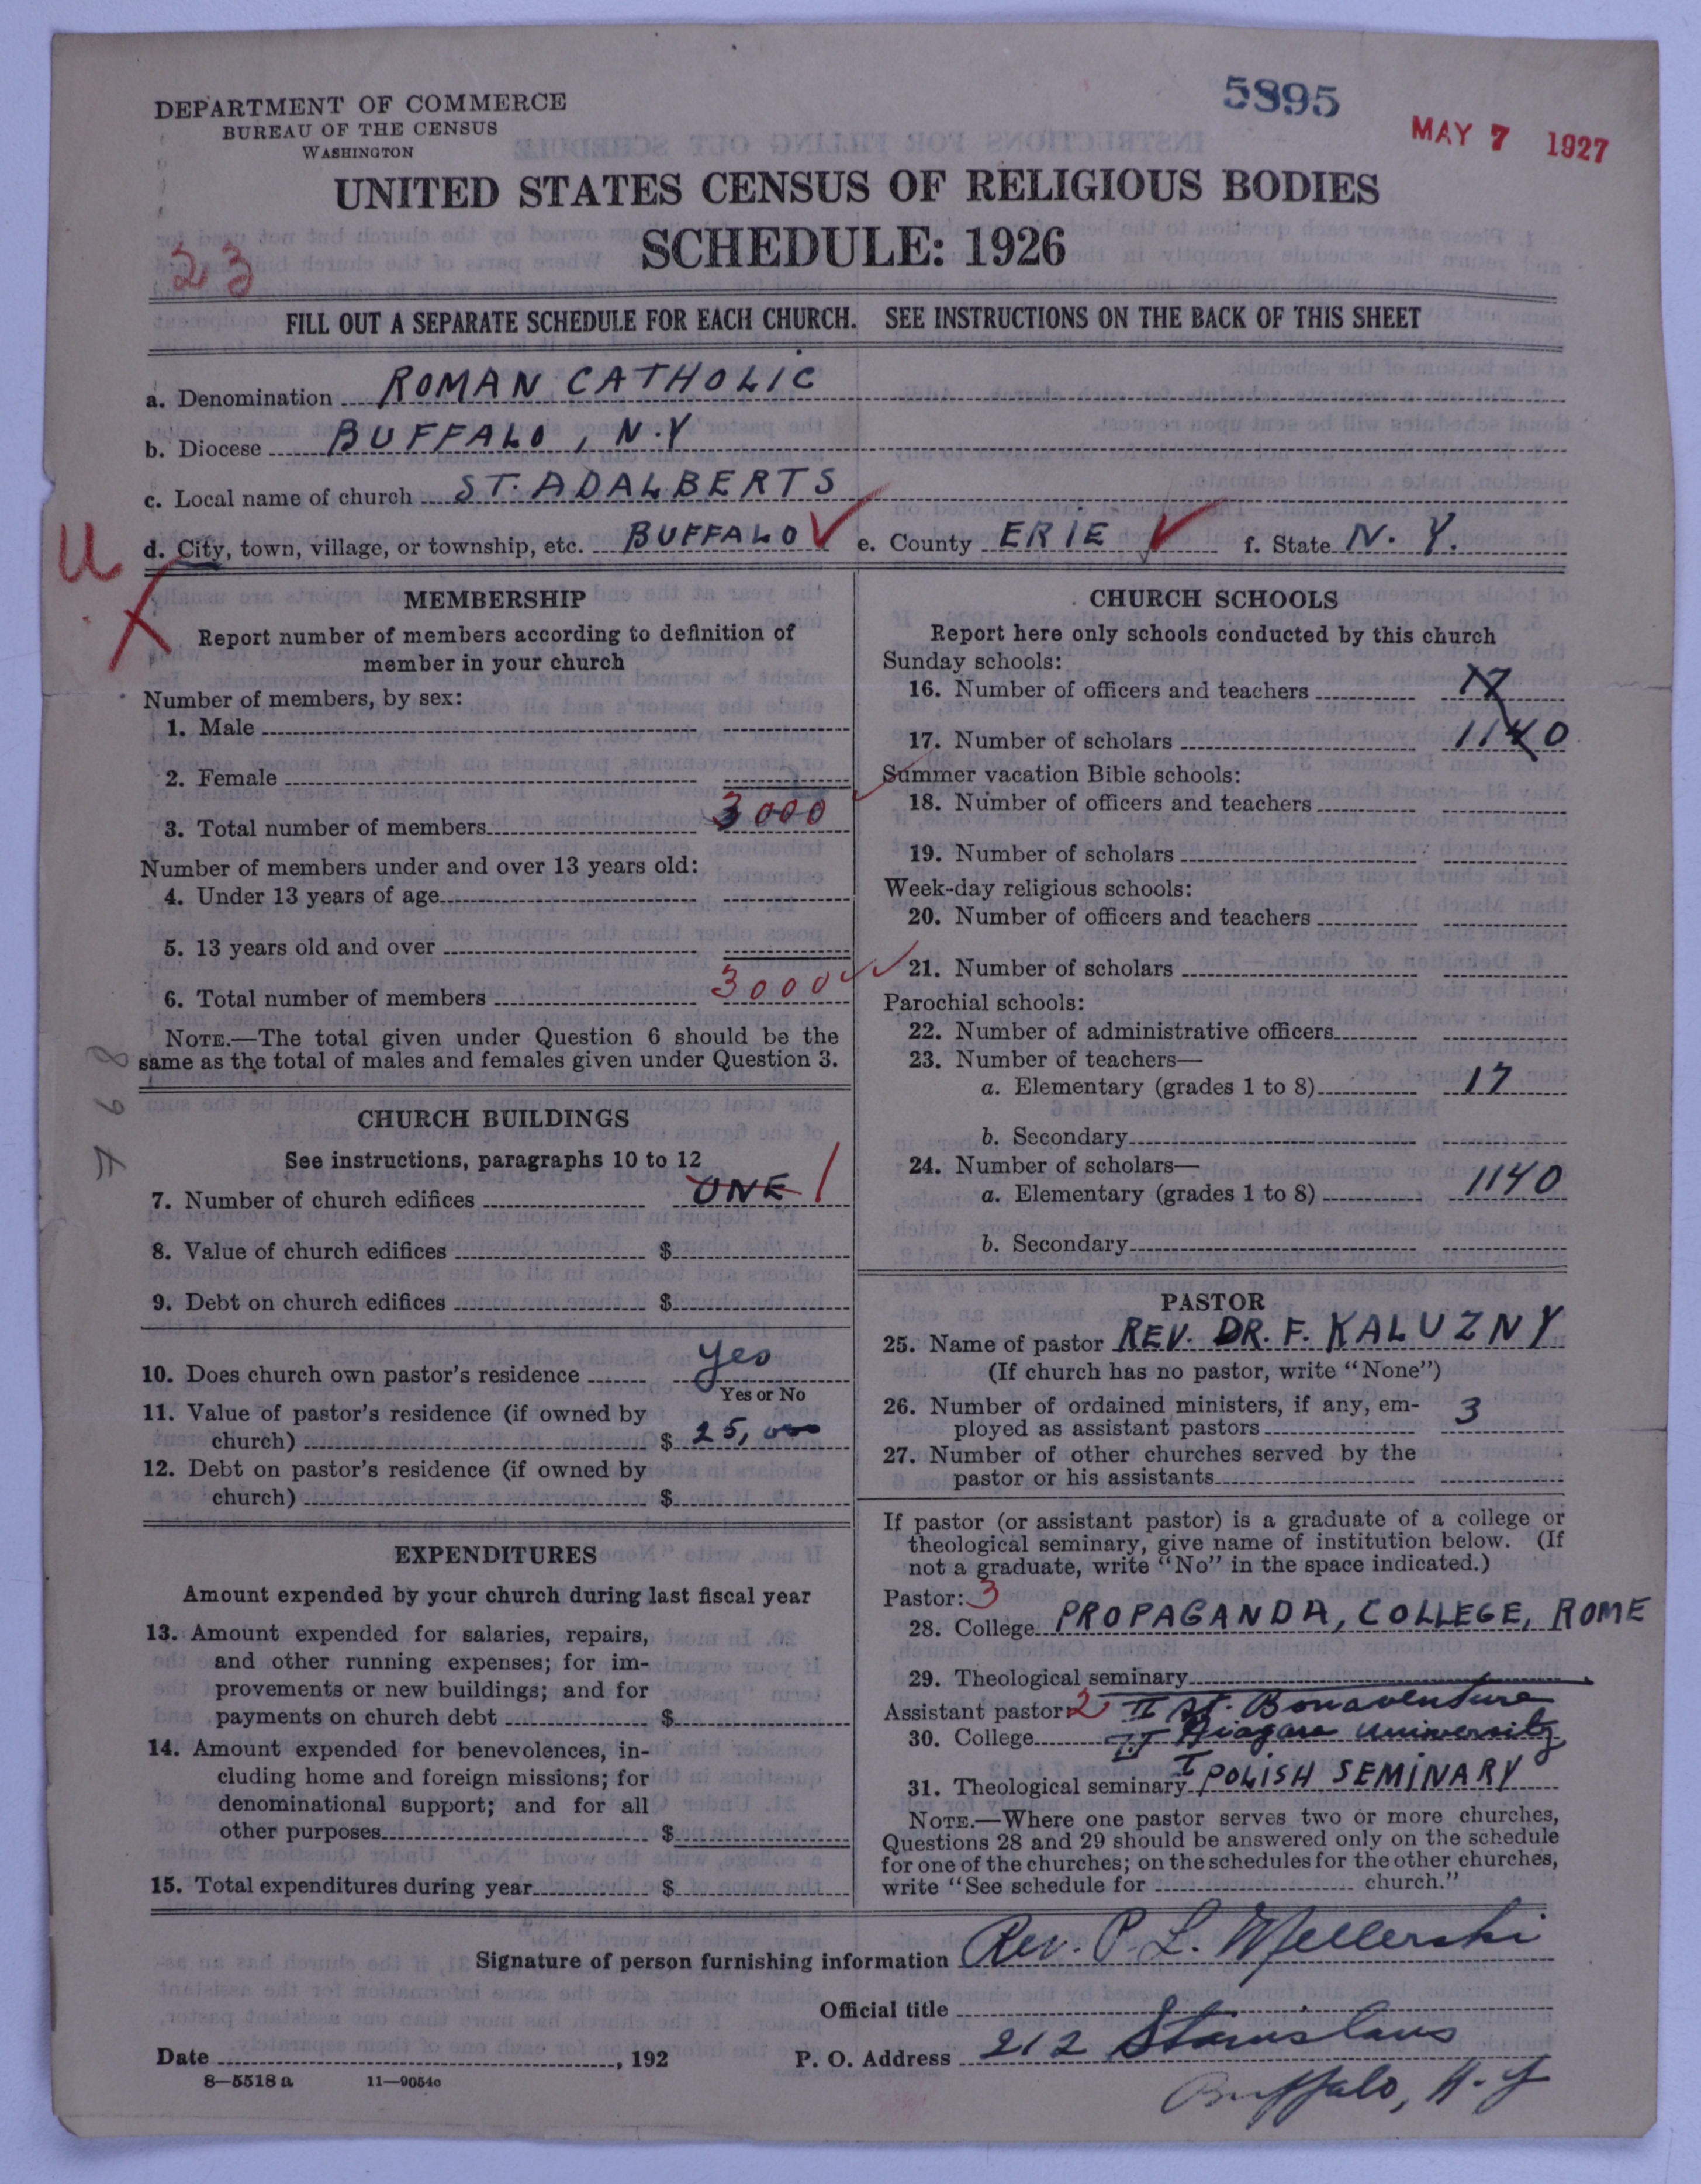 DEPARTMENT OF COMMERCE
BUREAU OF THE CENSUS
WASHINGTON
5895
MAY 7 1927
UNITED STATES CENSUS OF RELIGIOUS BODIES
SCHEDULE: 1926
23
FILL OUT A SEPARATE SCHEDULE FOR EACH CHURCH. SEE INSTRUCTIONS ON THE BACK OF THIS SHEET
a. Denomination ROMAN CATHOLIC
b. Diocese BUFFALO, N.Y
c. Local name of church ST. ADALBERTS
U
d. City, town, village, or township, etc. BUFFALO e. County ERIE f. State N. Y.
MEMBERSHIP
Report number of members according to definition of
member in your church
Number of members, by sex:
1. Male
2. Female
3. Total number of members 3000
Number of members under and over 13 years old:
4. Under 13 years of age
5. 13 years old and over
6. Total number of members 3000
NOTE.—The total given under Question 6 should be the
same as the total of males and females given under Question 3.
768
CHURCH BUILDINGS
See instructions, paragraphs 10 to 12
7. Number of church edifices ONE 1
8. Value of church edifices $
9. Debt on church edifices $
10. Does church own pastor's residence yes
Yes or No
11. Value of pastor's residence (if owned by
church) $ 25,000
12. Debt on pastor's residence (if owned by
church) $
EXPENDITURES
Amount expended by your church during last fiscal year
13. Amount expended for salaries, repairs,
and other running expenses; for im-
provements or new buildings; and for
payments on church debt $
14. Amount expended for benevolences, in-
cluding home and foreign missions; for
denominational support; and for all
other purposes $
15. Total expenditures during year $
CHURCH SCHOOLS
Report here only schools conducted by this church
Sunday schools:
16. Number of officers and teachers 17
17. Number of scholars 1140
Summer vacation Bible schools:
18. Number of officers and teachers
19. Number of scholars
Week-day religious schools:
20. Number of officers and teachers
21. Number of scholars
Parochial schools:
22. Number of administrative officers
23. Number of teachers—
a. Elementary (grades 1 to 8) 17
b. Secondary
24. Number of scholars—
a. Elementary (grades 1 to 8) 1140
b. Secondary
PASTOR
25. Name of pastor REV. DR. F. KALUZNY
(If church has no pastor, write "None")
26. Number of ordained ministers, if any, em-
ployed as assistant pastors 3
27. Number of other churches served by the
pastor or his assistants
If pastor (or assistant pastor) is a graduate of a college or
theological seminary, give name of institution below. (If
not a graduate, write "No" in the space indicated.)
Pastor: 3
28. College PROPAGANDA, COLLEGE, ROME
29. Theological seminary
Assistant pastor: 2 II St. Bonaventure
30. College II Niagara University
31. Theological seminary I POLISH SEMINARY
NOTE.—Where one pastor serves two or more churches,
Questions 28 and 29 should be answered only on the schedule
for one of the churches; on the schedules for the other churches,
write "See schedule for church."
Signature of person furnishing information Rev. P. L. Mellerski
Official title
Date , 192 P. O. Address 212 Stanislaus
Buffalo, N.Y
8—5518 a 11—9054c